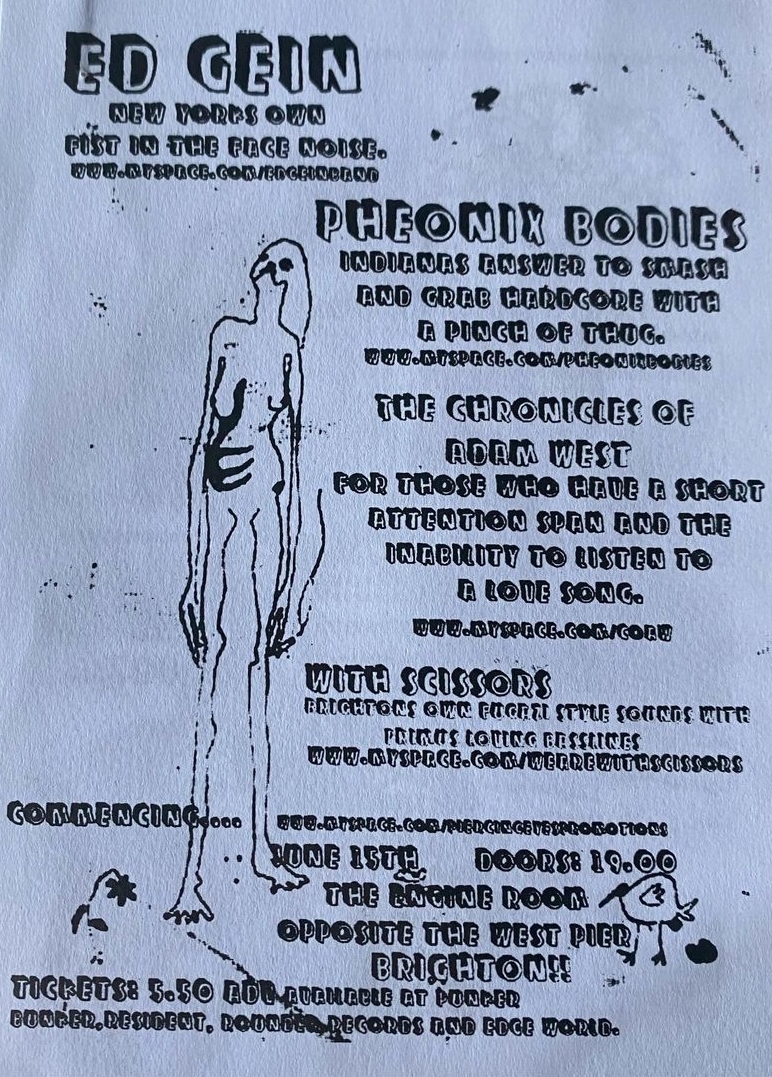 ED GEIN
NEW YORKS OWN
FIST IN THE FACE NOISE.
WWW.MYSPACE.COM/EDGEINBAND
PHEONIX BODIES
INDIANAS ANSWER TO SMASH
AND GRAB HARDCORE WITH
A PINCH OF THUG.
WWW.MYSPACE.COM/PHEONIXBODIES
THE CHRONICLES OF
ADAM WEST
FOR THOSE WHO HAVE A SHORT
ATTENTION SPAN AND THE
INABILITY TO LISTEN TO
A LOVE SONG.
WWW.MYSPACE.COM/COAW
WITH SCISSORS
BRIGHTONS OWN FUGAZI STYLE SOUNDS WITH
PRIMUS LOVING BASSLINES
WWW.MYSPACE.COM/WEAREWITHSCISSORS
COMMENCING....
WWW.MYSPACE.COM/PIERCINGEYESPROMOTIONS
JUNE 15TH DOORS: 19.00
THE ENGINE ROOM
OPPOSITE THE WEST PIER
BRIGHTON!!
TICKETS: 5.50 ADV AVAILABLE AT PUNKER
BUNKER, RESIDENT, ROUNDER RECORDS AND EDGE WORLD.